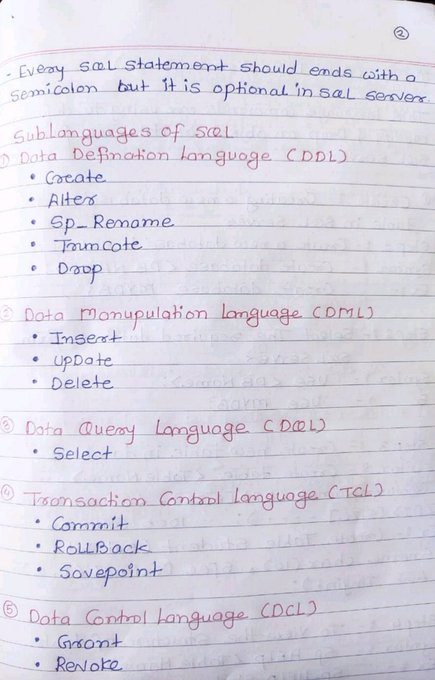 ②
- Every SQL Statement should ends with a
semicolon but it is optional in SQL Server.
Sublanguages of SQL
① Data Defination Language (DDL)
• Create
• Alter
• Sp_Rename
• Truncate
• Drop
② Data Manupulation Language (DML)
• Insert
• UpDate
• Delete
③ Data Query Language (DQL)
• Select
④ Transaction Control Language (TCL)
• Commit
• RollBack
• Savepoint
⑤ Data Control Language (DCL)
• Grant
• Revoke